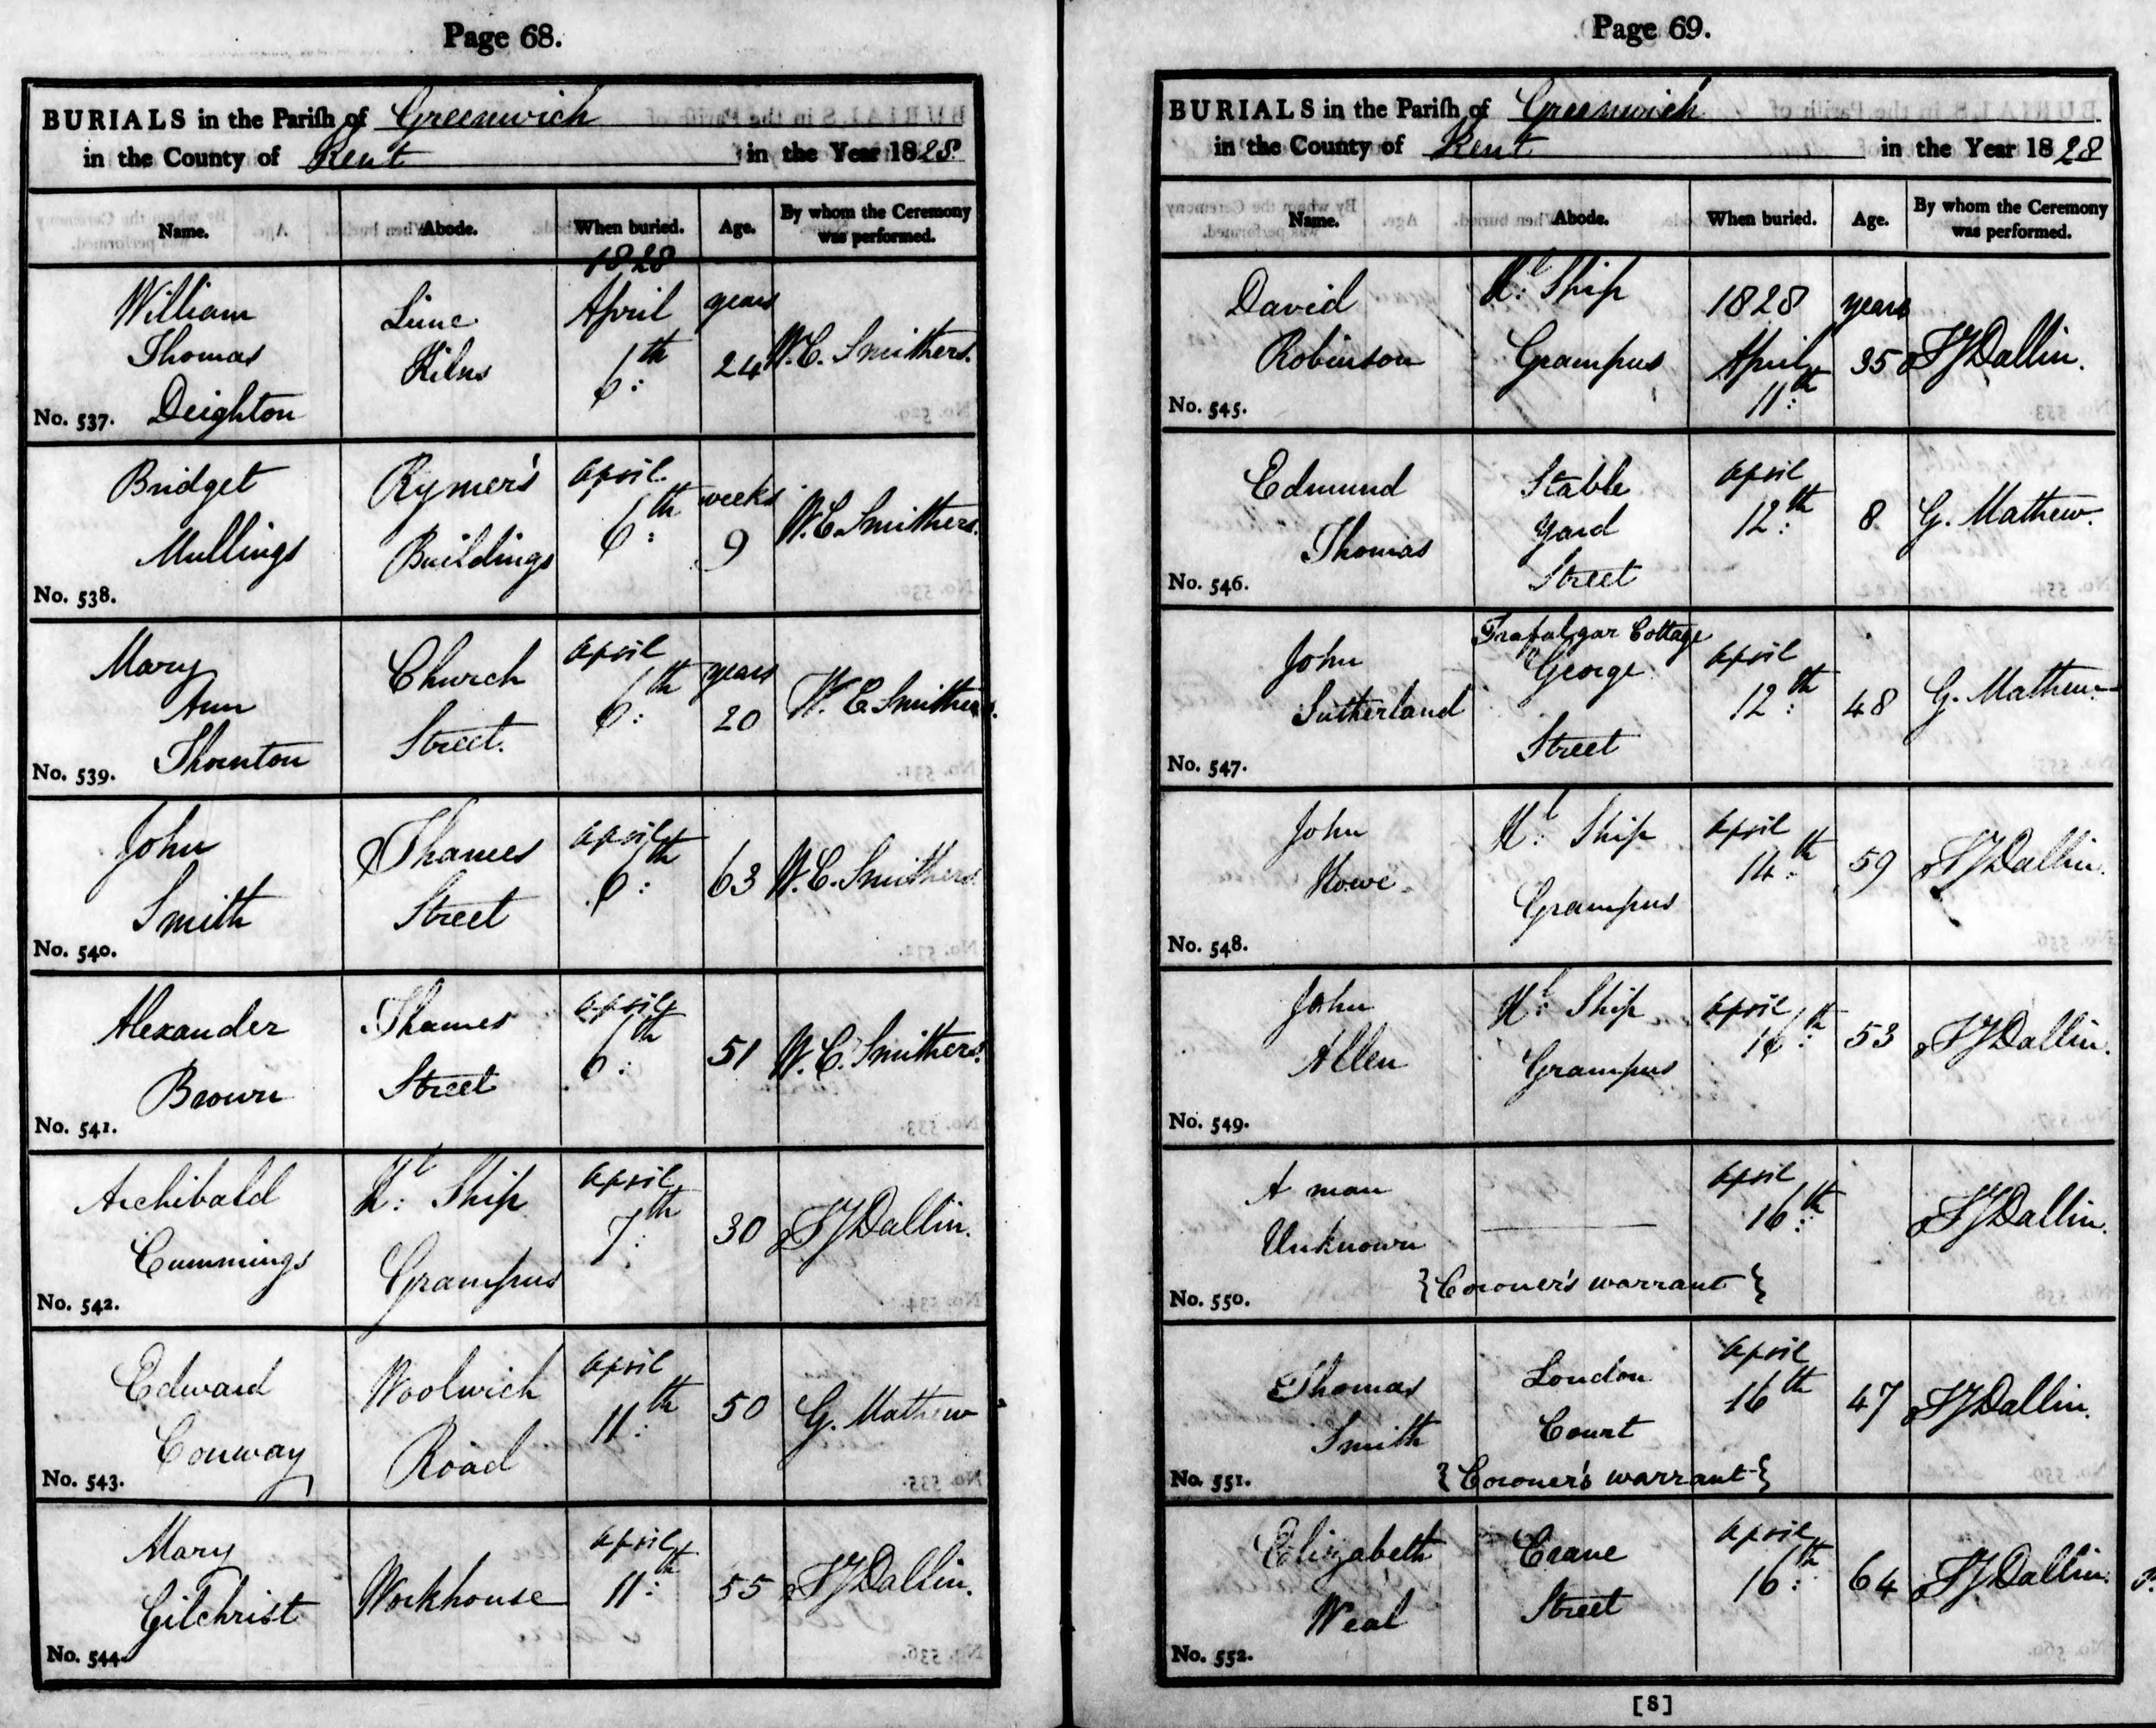 Page 68.
BURIALS in the Parish of Greenwich
in the County of Kent in the Year 1828.
Name. Abode. When buried. Age. By whom the Ceremony was performed.
1828
William Thomas Deighton
Lime Kilns
April 6th
years 24
W. C. Smithers.
No. 537.
Bridget Mullings
Rymer's Buildings
April 6th
weeks 9
W. C. Smithers.
No. 538.
Mary Ann Thornton
Church Street.
April 6th
years 20
W. C. Smithers.
No. 539.
John Smith
Thames Street
April 6th
63
W. C. Smithers
No. 540.
Alexander Brown
Thames Street
April 6th
51
W. C. Smithers.
No. 541.
Archibald Cummings
Hl. Ship Grampus
April 7th
30
J J Dallin.
No. 542.
Edward Conway
Woolwich Road
April 11th
50
G. Mathew
No. 543.
Mary Gilchrist
Workhouse
April 11th
55
J J Dallin.
No. 544.
Page 69.
BURIALS in the Parish of Greenwich
in the County of Kent in the Year 1828
Name. Abode. When buried. Age. By whom the Ceremony was performed.
David Robinson
Hl. Ship Grampus
1828 April 11th
years 35
J J Dallin.
No. 545.
Edmund Thomas
Stable Yard Street
April 12th
8
G. Mathew.
No. 546.
John Sutherland
Trafalgar Cottage George Street
April 12th
48
G. Mathew
No. 547.
John Howe
Hl. Ship Grampus
April 14th
59
J J Dallin.
No. 548.
John Allen
Hl. Ship Grampus
April 16th
53
J J Dallin.
No. 549.
A man Unknown
April 16th
J J Dallin.
{Coroner's warrant}
No. 550.
Thomas Smith
London Court
April 16th
47
J J Dallin.
{Coroner's warrant}
No. 551.
Elizabeth Weal
Crane Street
April 16th
64
J J Dallin.
No. 552.
[8]